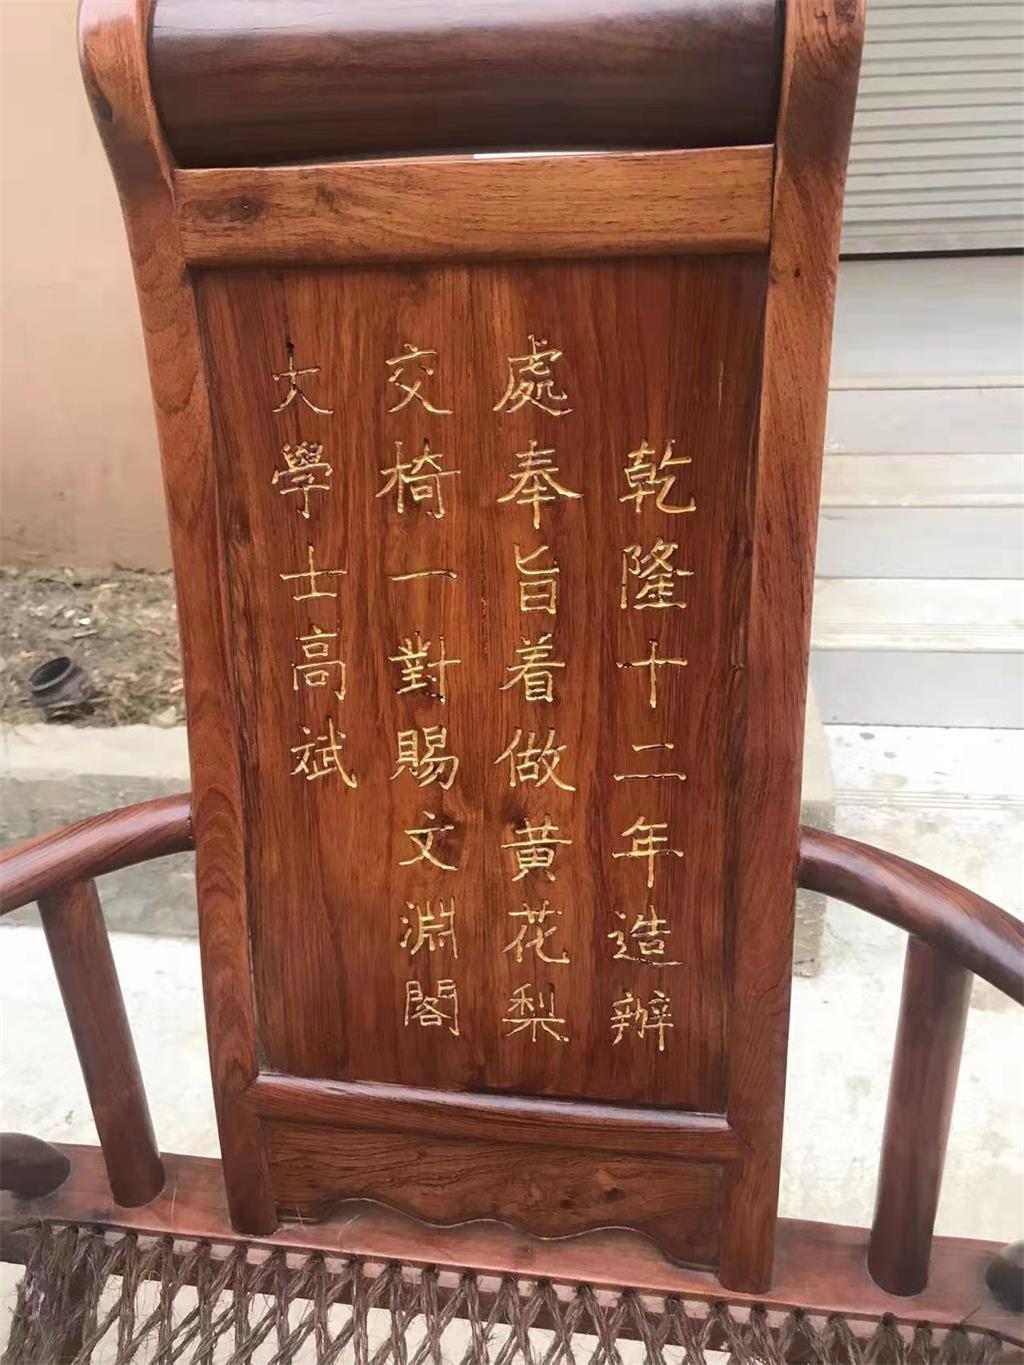 乾隆十二年造辦
處奉旨着做黄花梨
交椅一對賜文淵閣
大學士高斌